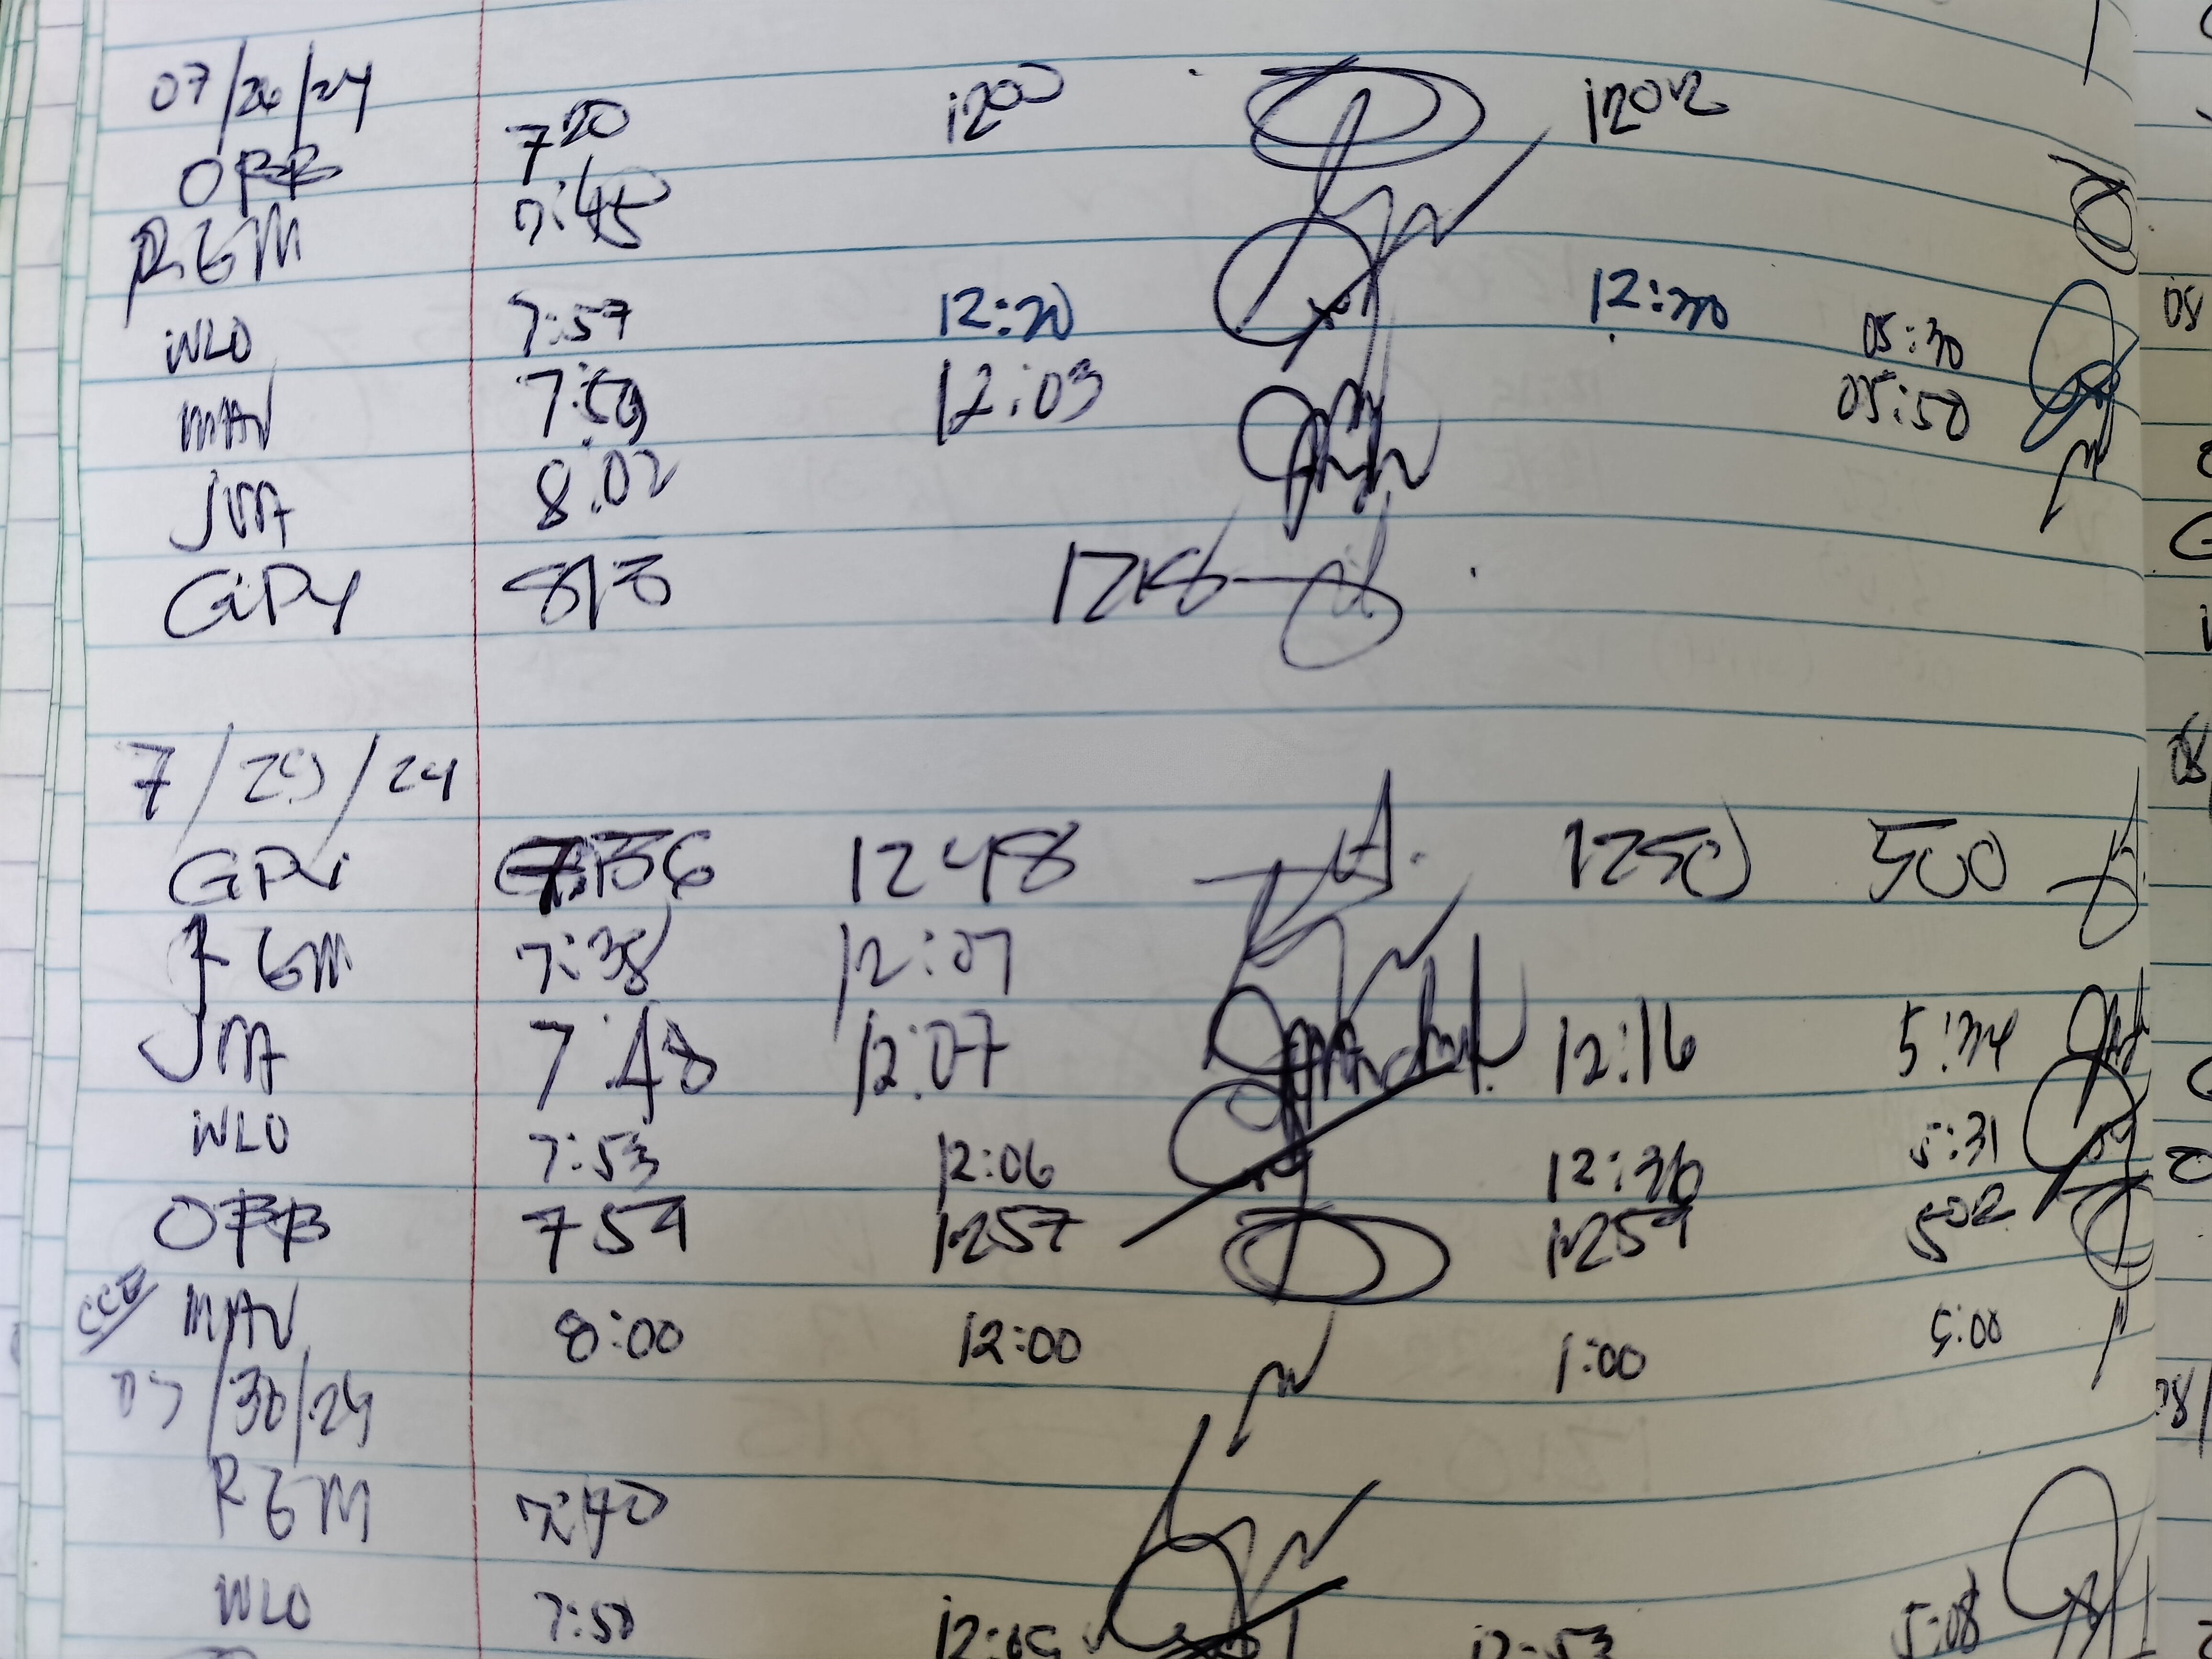 07/26/24
OFB 7 20 1200 1202
RGM 7:45
WLO 7:57 12:20 12:20 05:30
MAV 7:59 12:03 05:50
JMA 8:02
GPY 818 1218
7/29/24
GPY 7:36 1248 1250 500
RGM 7:38 12:07
JMA 7:48 12:07 12:16 5:34
WLO 7:53 12:06 12:36 5:31
OFB 7 59 1257 1259 502
CCE MAV 8:00 12:00 1:00 5:00
07/30/24
RGM 7:40
WLO 7:50 12:05 12:53 5:08